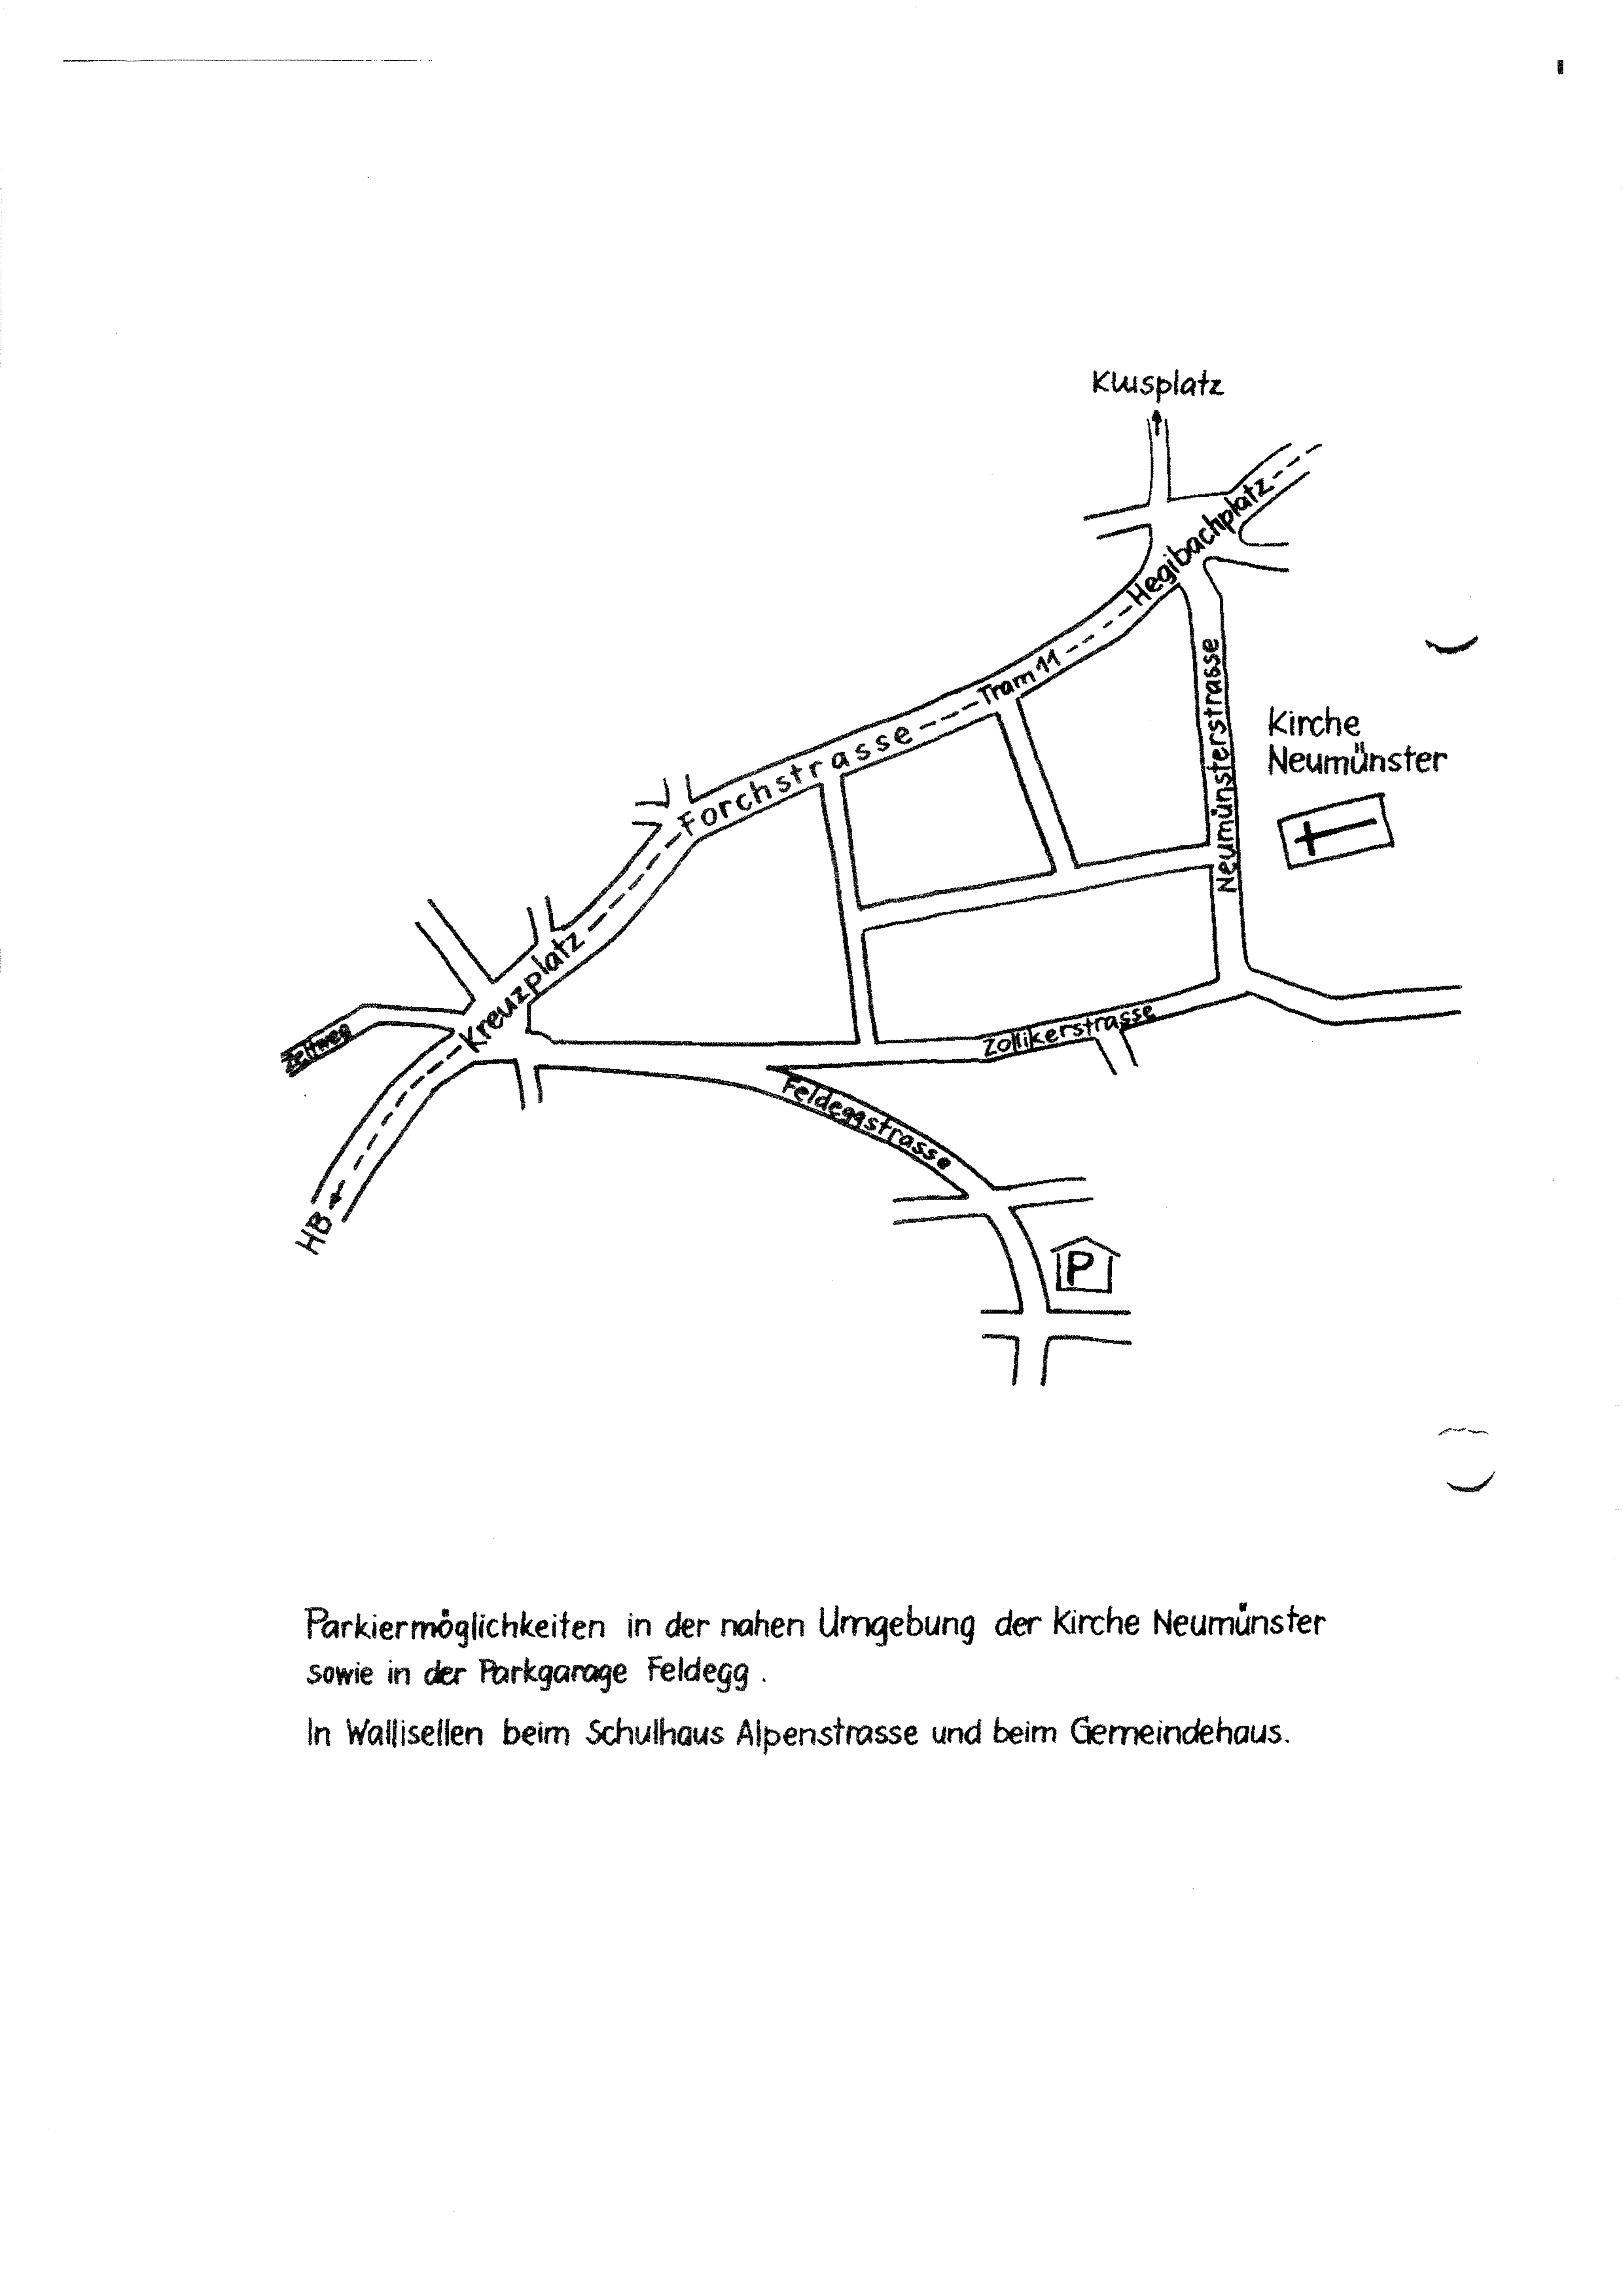 Klusplatz
Hegibachplatz
Tram 11
Neumünsterstrasse
Kirche
Neumünster
Forchstrasse
Kreuzplatz
Zeltweg
Zollikerstrasse
Feldeggstrasse
HB
P
Parkiermöglichkeiten in der nahen Umgebung der Kirche Neumünster
sowie in der Parkgarage Feldegg.
In Wallisellen beim Schulhaus Alpenstrasse und beim Gemeindehaus.